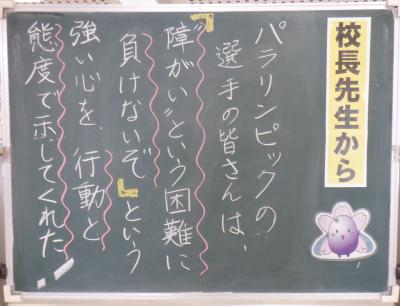 校長先生から
パラリンピックの
選手の皆さんは、
「〝障がい〟という困難に
負けないぞ」という
強い心を、行動と
態度で示してくれた